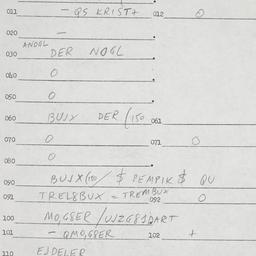 011 - QS KRIST+ 012 0
020 -
ANOGL
030 DER NOGL
040 0
050 0
060 BUJX DER (150 061
070 0 071 0
080 0
090 BUJX(150/ $ PEMPIK $ QU
091 TREL8BUX - TREMBUX 092 0
100 MO,G8ER /UJZG8JDART
101 - QMO,G8ER 102 +
110 EJDELER